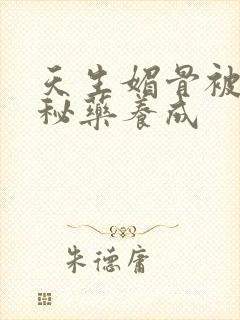 天生媚骨被
秘药养成
朱德庸